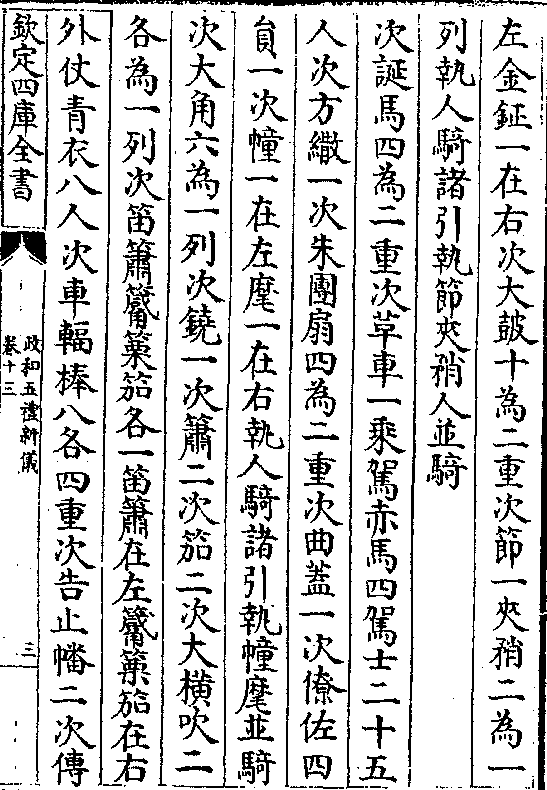 左金鉦一在右次大皷十為二重次節一夾矟二為一
列執人騎諸引執節夾矟人並騎
次誕馬四為二重次革車一乗駕赤馬四駕士二十五
人次方繖一次朱團扇四為二重次曲蓋一次僚佐四
員一次幢一在左麾一在右執人騎諸引執幢麾並騎
次大角六為一列次鐃一次簫二次笳二次大橫吹二
各為一列次笛簫篳篥笳各一笛簫在左篳篥笳在右
外仗青衣八人次車輻棒八各四重次告止幡二次傳
欽定四庫全書
政和五禮新儀
卷十三
三